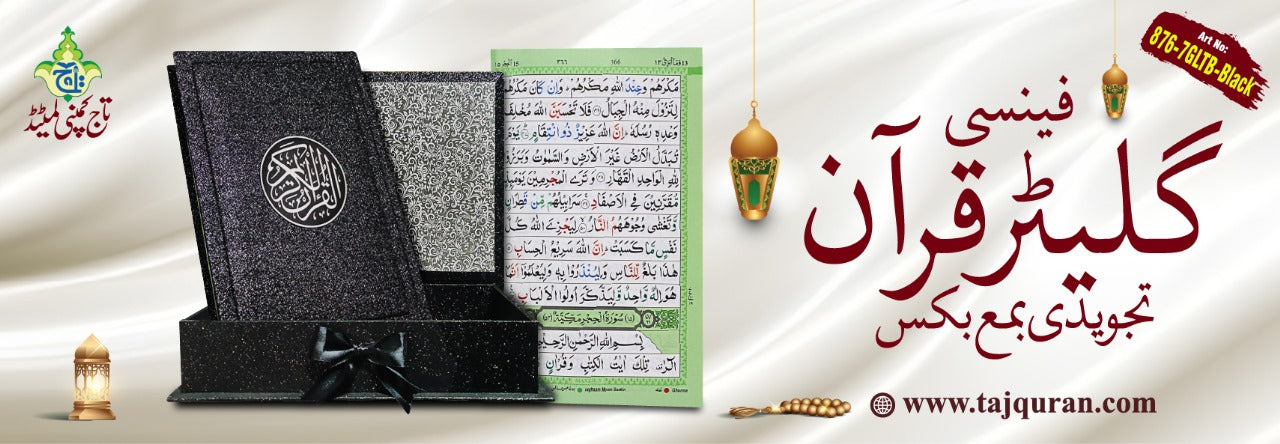 تاج
تاج کمپنی لمیٹڈ
القرآن الكريم
Art No:
876-7GLTB-Black
فینسی
گلیٹر قرآن
تجویدی بمع بکس
www.tajquran.com
۳۶۶
166
مَكْرَهُمْ وَعِنْدَ اللّٰهِ مَكْرُهُمْ ؕ وَاِنْ كَانَ مَكْرُهُمْ
لِتَزُوْلَ مِنْهُ الْجِبَالُ فَلَا تَحْسَبَنَّ اللّٰهَ مُخْلِفَ
وَعْدِهٖ رُسُلَهٗ ؕ اِنَّ اللّٰهَ عَزِيْزٌ ذُوانْتِقَامٍ يَوْمَ
تُبَدَّلُ الْاَرْضُ غَيْرَ الْاَرْضِ وَالسَّمٰوٰتُ وَبَرَزُوْا
لِلّٰهِ الْوَاحِدِ الْقَهَّارِ وَتَرَى الْمُجْرِمِيْنَ يَوْمَئِذٍ
مُّقَرَّنِيْنَ فِي الْاَصْفَادِ سَرَابِيْلُهُمْ مِّنْ قَطِرَانٍ
وَّتَغْشٰى وُجُوْهَهُمُ النَّارُ لِيَجْزِيَ اللّٰهُ كُلَّ
نَفْسٍ مَّا كَسَبَتْ ؕ اِنَّ اللّٰهَ سَرِيْعُ الْحِسَابِ
هٰذَا بَلٰغٌ لِّلنَّاسِ وَلِيُنْذَرُوْا بِهٖ وَلِيَعْلَمُوْۤا اَنَّمَا
هُوَ اِلٰهٌ وَّاحِدٌ وَّلِيَذَّكَّرَ اُولُوا الْاَلْبَابِ
سُوْرَةُ الْحِجْرِ مَكِّيَّةٌ
بِسْمِ اللّٰهِ الرَّحْمٰنِ الرَّحِيْمِ
الٓرٰ تِلْكَ اٰيٰتُ الْكِتٰبِ وَقُرْاٰنٍ
Ghunna